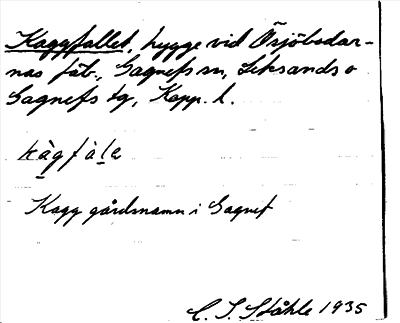 Kaggfallet, hygge vid Örsjöbodar-
nas fäb., Gagnefs sn, Leksands o
Gagnefs tg, Kopp. l.
kàgfàle
Kagg gårdsnamn i Gagnef
C. I. Ståhle 1935